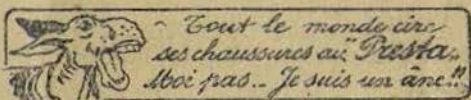 ~ Tout le monde cire
ses chaussures au "Presta„
Moi pas.. Je suis un âne!!